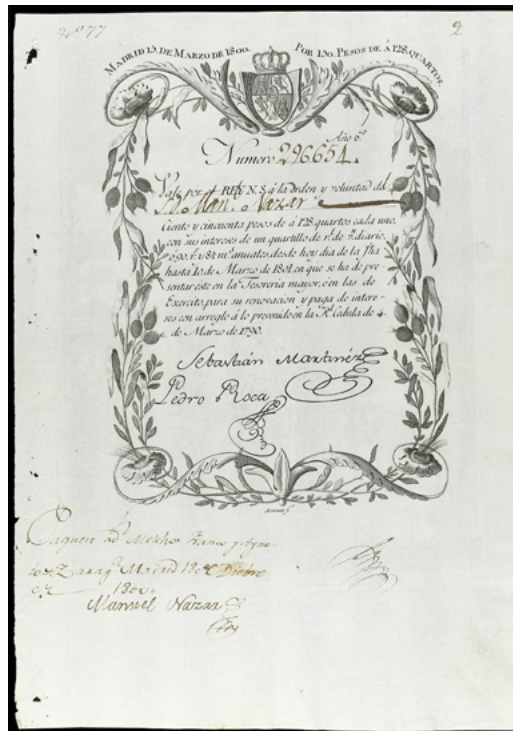 2
MADRID 15. DE MARZO DE 1800. POR 150. PESOS DE Á 128. QUARTOS.
Año 6º
Numero 296654.
Vale por el REY N. S. á la orden y voluntad del
Man. Nazar
Ciento y cincuenta pesos de á 128. quartos cada uno,
con sus intereses de un quartillo de rl. de vn. diario,
desde hoy dia de la fha
hasta 10 de Marzo de 1801. en que se ha de pre-
sentar este en la Tesoreria mayor, ó en las de
Exercito, para su renovacion y paga de intere-
ses con arreglo á lo prevenido en la Rl. Cedula de 4.
de Marzo de 1790.
Sebastián Martínez
Pedro Roca
Paguese
Madrid
Manuel Nazar